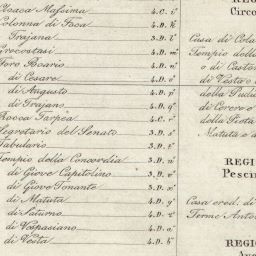 Cloaca Massima 4.C. i²
Colonna di Foca 4.D. k²
Trajana 3.D. l²
Grecostasi 4.D. m²
Foro Boario 4.D. n²
di Cesare 4.D. o²
di Augusto 4.D. p²
di Trajano 4.D. q²
Rocca Tarpea 4.C. r²
Segretario del Senato 3.D. s²
Tabulario 3.D. t²
Tempio della Concordia 3.D. u²
di Giove Capitolino 3.D. v²
di Giove Tonante 3.D. x²
di Matuta 4.D. y²
di Saturno 4.D. z²
di Vespasiano 4.D.
di Vesta 4.D.
REG
Circo
Casa di Cola
Tempio della
o di Castor
di Vesta o
della Pudi
di Cerere o
della Pietà
Matuta o d
REGI
Pescin
Casa ered. di
Terme Anton
REGIO